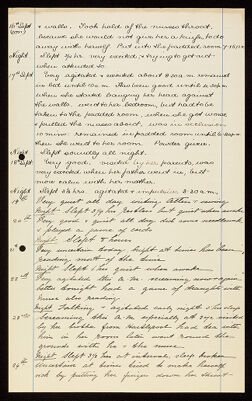 16th Sept & walls. Took hold of the nurses throat,
(con) because she would not give her a knife, to do
away with herself. Put into the padded room 7.15 p.m.
Night Slept 3½ hrs. very excited & trying to get out
when attended to
17th Sept Very agitated & excited about 8 a.m. remained
in bed until 10 a.m. Has been good until 2.30 p.m.
when she started banging her head against
the walls, went to her bedroom, but had to be
taken to the padded room, when she got worse
& pulled the nurses about, was in seclusion
10 mins. remained in padded room until
then she went to her room. Powder given.
Night Slept soundly all night.
18th Sept Very good, visited by her parents, was
very excited when her father went in, but
more calm with her mother.
Night Slept 3½ hrs, agitated & impulsive 3.30 a.m.
19th Very quiet all day, writing letters & sewing
Night Slept 3½ hrs, restless but quiet when awake
20th Very good & quiet all day did some needlework
& played a game of cards
Night Slept 5 hours
21st Very uncertain today, Night at times has been
reading most of the time
Night Slept 1 hr quiet when awake
22nd Very agitated this a.m. recovering now again
better tonight had a game of draughts with
nurse also reading
Night Talking & agitated each night 2 hrs sleep
23rd Screaming this a.m. especially at 2 p.m. visited
by her brother from had tea with
him in her room later went round the
grounds with he & the nurse
Night Slept 3½ hrs at intervals, sleep broken
24th Uncertain at times tried to make herself
sick by putting her fingers down her throat